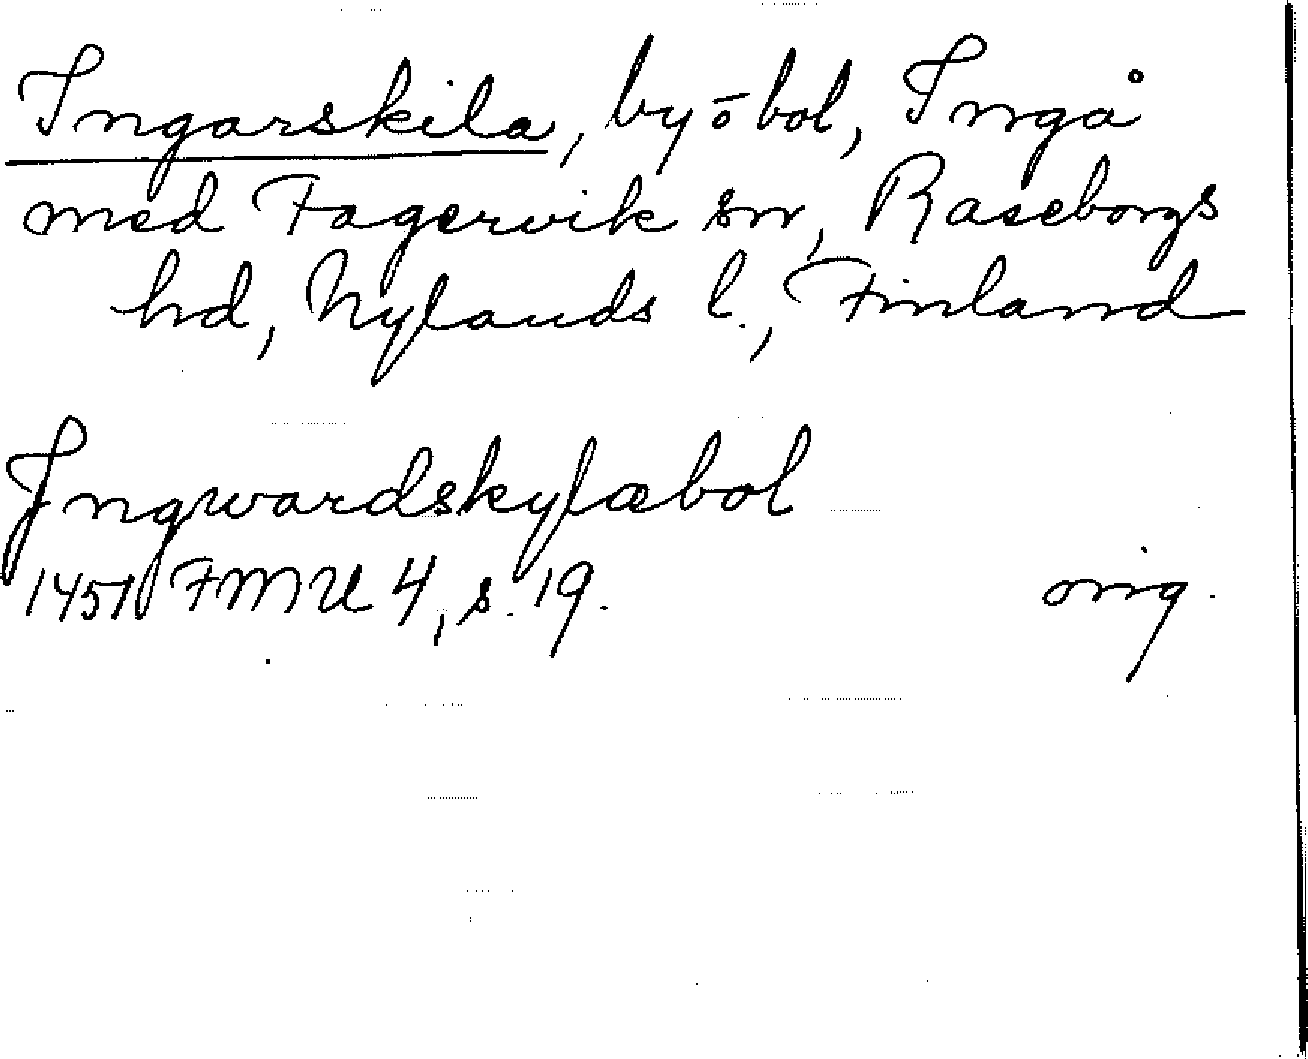 Ingarskila, by o bol, Ingå
med Fagervik sn, Raseborgs
hd, Nylands l., Finland
Jngwardskylæbol
1451 FMU 4, s. 19. orig.